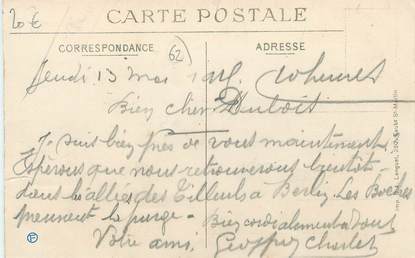 20 €
CARTE POSTALE
CORRESPONDANCE
62
ADRESSE
Jeudi 13 Mai
Bien cher Dubois
Je suis bien près de vous maintenant
Espérons que nous nous retrouverons bientôt
dans les allées des Tilleuls à Berlin. Les Boches
prennent la purge - Bien cordialement à vous
Votre ami. Geoffroy Charles